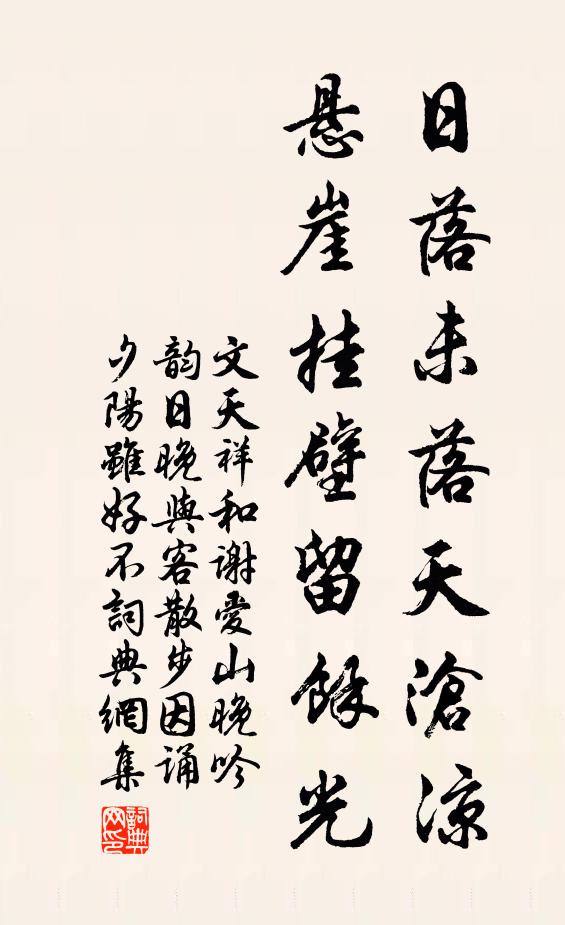 日落未落天滄涼
悬崖挂壁留餘光
文天祥和謝愛山晚吟
韵日晚與客散步因誦
夕陽雖好不詞典網集
詞典
网印